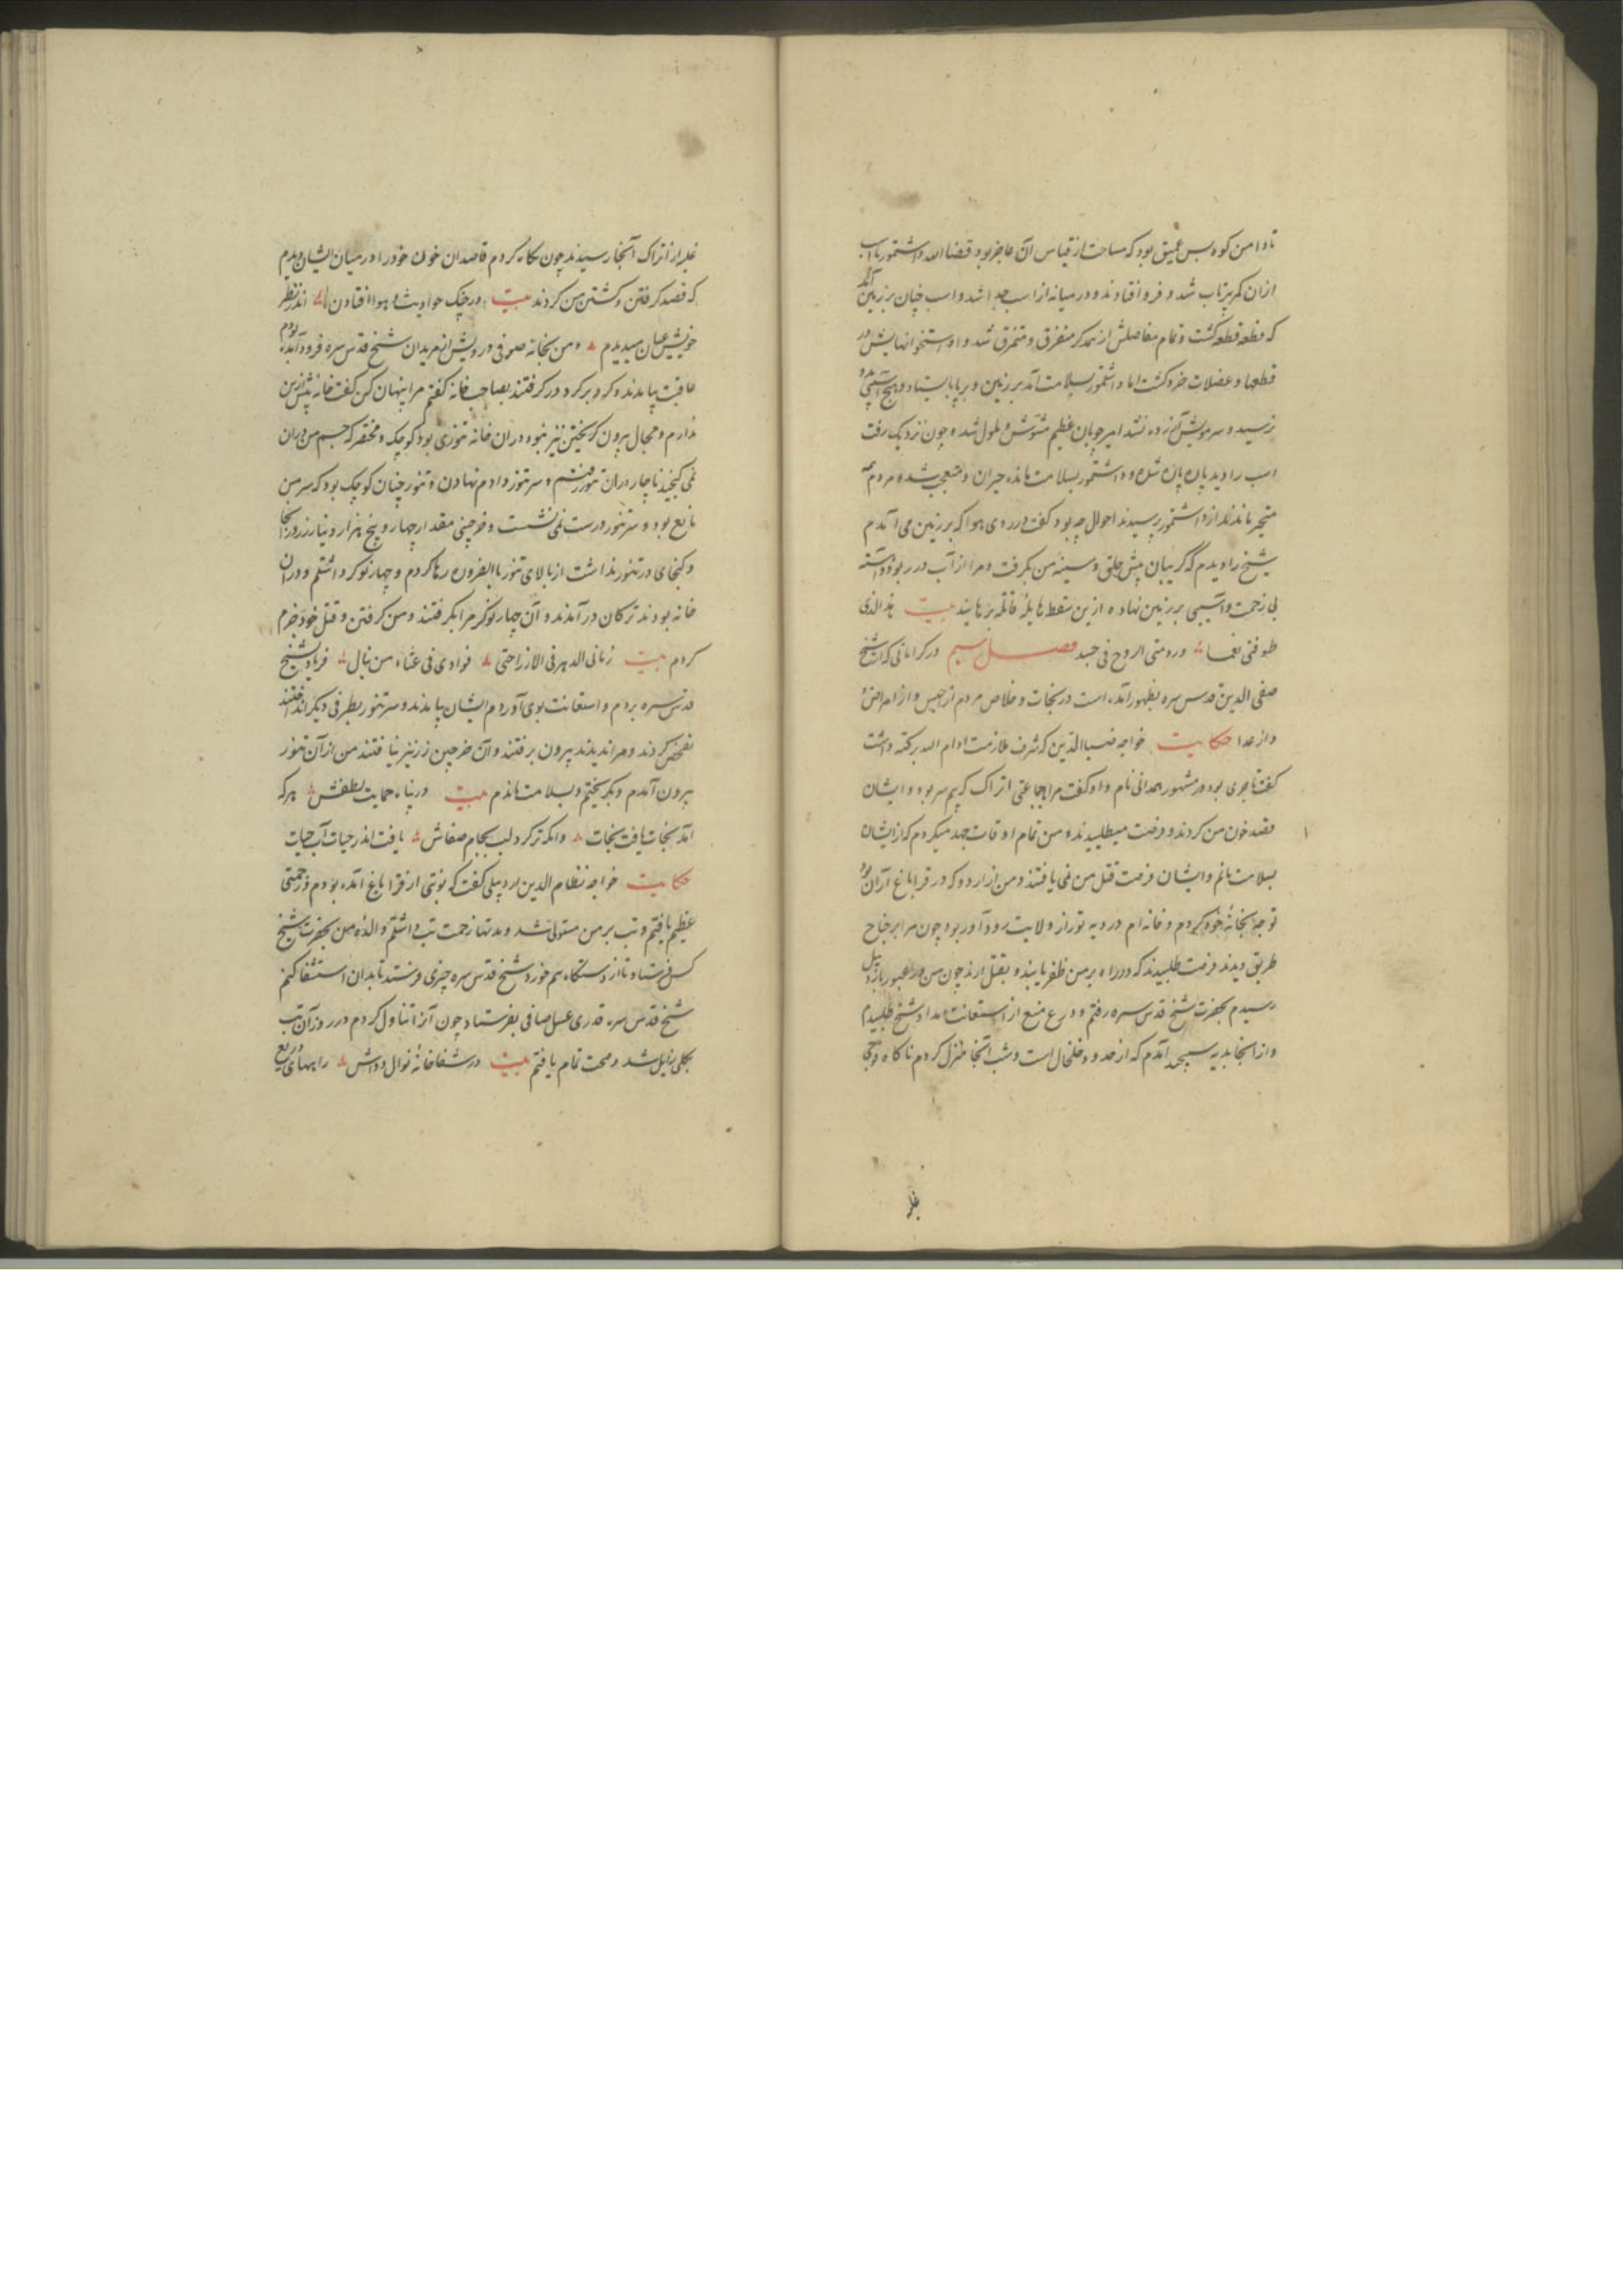 تا دامن کوه بس عمیق بود که مساحت از قیاس آن عاجز بود قضا الله داشتمور با اسب
ازان کمر پرتاب شد و فرو افتادند و در میانه از اسب جدا شد و اسب چنان بر زمین آمد
که قطعه قطعه گشت و تمام مفاصلش از یکدیگر متفرق و متمزق شد و استخوانهایش در
قطعها و عضلات خرد گشت اما داشتمور بسلامت آمد بر زمین و بر پا بایستاد و هیچ آسیبی بدو
نرسید و سر مویش آزرده نشد امیر چوپان عظیم مشوش و ملول شد و چون نزدیک رفت
اسب را دید پاره پاره شده و داشتمور بسلامت مانده حیران و متعجب شد و مردم همه
متحیر ماندند از داشتمور پرسیدند احوال چه بود گفت در روی هوا که بر زمین می آمدم
شیخ را دیدم که گریبان پیش حلق و سینه من بگرفت و مرا از اسب در ربود و آهسته
بی زحمت و آسیبی بر زمین نهاد و ازین سقطه هایله قاتله برهانید بیت
طوقنی نعما ورد منی الروح فی جسد فصل سیم در کراماتی که از شیخ
صفی الدین قدس سره بظهور آمده است در نجات و خلاص مردم از حبس و از امراض و
و از عدا حکایت خواجه ضیاالدین که شرف ملازمت ادام الله برکته داشت
گفت تاجری بود مشهور همدانی نام و او گفت مرا با جماعتی اتراک که بیم سر بود و ایشان
قصد خون من کردند و فرصت میطلبیدند و من تمام اوقات جهد میکردم که از ایشان
بسلامت مانم و ایشان فرصت قتل من نمی یافتند و من از اردو که در قراباغ آران بود
توجه بخانه خود کردم و خانه ام در دیه توراز ولایت رودآور بود چون مرا بر جناح
طریق دیدند فرصت طلبیدند که در راه بر من ظفر یابند و بقتل آرند چون من در عبور باردبیل
رسیدم بحضرت شیخ قدس سره رفتم و درع منع از استعانت و امداد شیخ طلبیدم
و از آنجا بدیه سپید آمدم که از حدود خلخال است و شب آنجا منزل کردم ناگاه فوجی
غلبه
غلبه از اتراک آنجا رسیدند چون نگاه کردم قاصدان خون خود را در میان ایشان دیدم
که قصد گرفتن و کشتن من کردند بیت در چنگ حوادث و بهوا افتادن اندر نظر
خویش عیان میدیدم و من بخانه صوفی درویش از مریدان شیخ قدس سره فرود آمده بودم
عاقبت بیامدند و گرد بر گرد در گرفتند بصاحب خانه گفتم مرا پنهان کن گفت خانه بیش ازین
ندارم و مجال بیرون گریختن نیز نبود و در آن خانه تنوری بود کوچک و مختصر که جسم من دران
نمی گنجید ناچار دران تنور رفتم و سر تنور وادم نهادن و تنور چنان کوچک بود که سر من
مانع بود و سر تنور درست نمی نشست و خرجینی مقدار چهار و پنج هزار دینار زر در آنجا
و گنجای در تنور نداشت از بالای تنور بالضروره رها کردم و چهار نوکر داشتم و دران
خانه بودند ترکان در آمدند و آن چهار نوکر مرا بگرفتند و من گرفتن و قتل خود جزم
کردم بیت رمانی الدهر فی الارزا حتی فوادی فی غشاء من نبال فریاد بشیخ
قدس سره بردم و استعانت بوی آوردم ایشان بیامدند و سر تنور بطرفی دیگر انداختند
تفحص کردند و مرا ندیدند بیرون برفتند و آن خرجین زر نیز نیافتند من از آن تنور
بیرون آمدم و بگریختم و بسلامت ماندم بیت در پناه حمایت لطفش هر که
آمد نجات یافت نجات وانکه تر کرد لب بجام صفاش یافت اندر حیات آب حیات
حکایت خواجه نظام الدین اردبیلی گفت که نوبتی از قراباغ آمده بودم و زحمتی
عظیم یافتم و تب بر من مستولی شد و مدتها زحمت تب داشتم والده من بحضرت شیخ
کس فرستاد تا از دستگاه هم خورد شیخ قدس سره چیزی فرستد تا بدان استشفا کنم
شیخ قدس سره قدری عسل صافی بفرستاد چون آنرا تناول کردم در روز آن تب
بکلی زایل شد و صحت تمام یافتم بیت در شفاخانه نوال و دواش